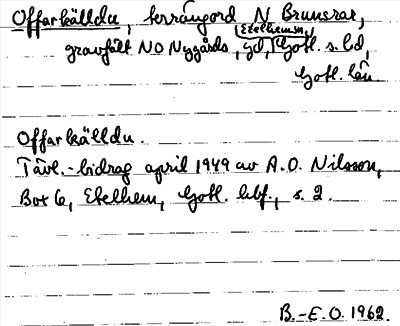 Offarkälldu, terrängord N Brunsrar,
Etelhemsn,
gravfält NO Nygårds, gd, Gotl. s. hd,
Gotl. län.
Offarkälldu.
Tävl.-bidrag april 1949 av A.O. Nilsson,
Box 6, Etelhem, Gotl. hbf., s. 2.
B.-E.O. 1962.